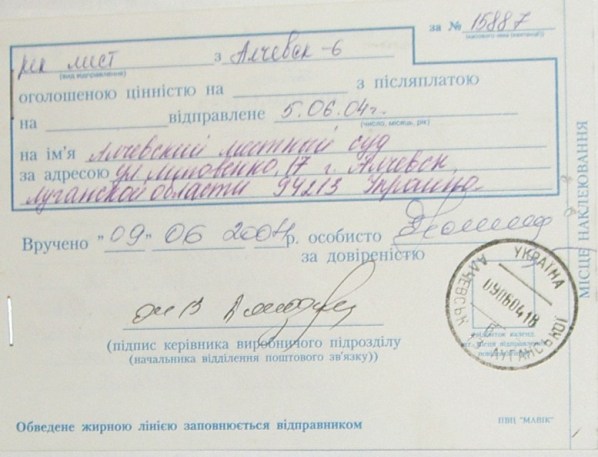 за № 15887
рек лист з Алчевск-6
(вид відправлення)
оголошеною цінністю на з післяплатою
на відправлене 5.06.04г.
(число, місяць, рік)
на ім'я Алчевский местный суд
за адресою ул Липовенко, 17 г Алчевск
Луганской области 94213 Україна
Вручено "09" 06 2004р. особисто
за довіреністю
(підпис керівника виробничого підрозділу
(начальника відділення поштового зв'язку))
УКРАЇНА
АЛЧЕВСЬК
090604 18
ЛУГАНСЬКОЇ
МІСЦЕ НАКЛЕЮВАННЯ
Обведене жирною лінією заповнюється відправником
ПВЦ "МАВІК"